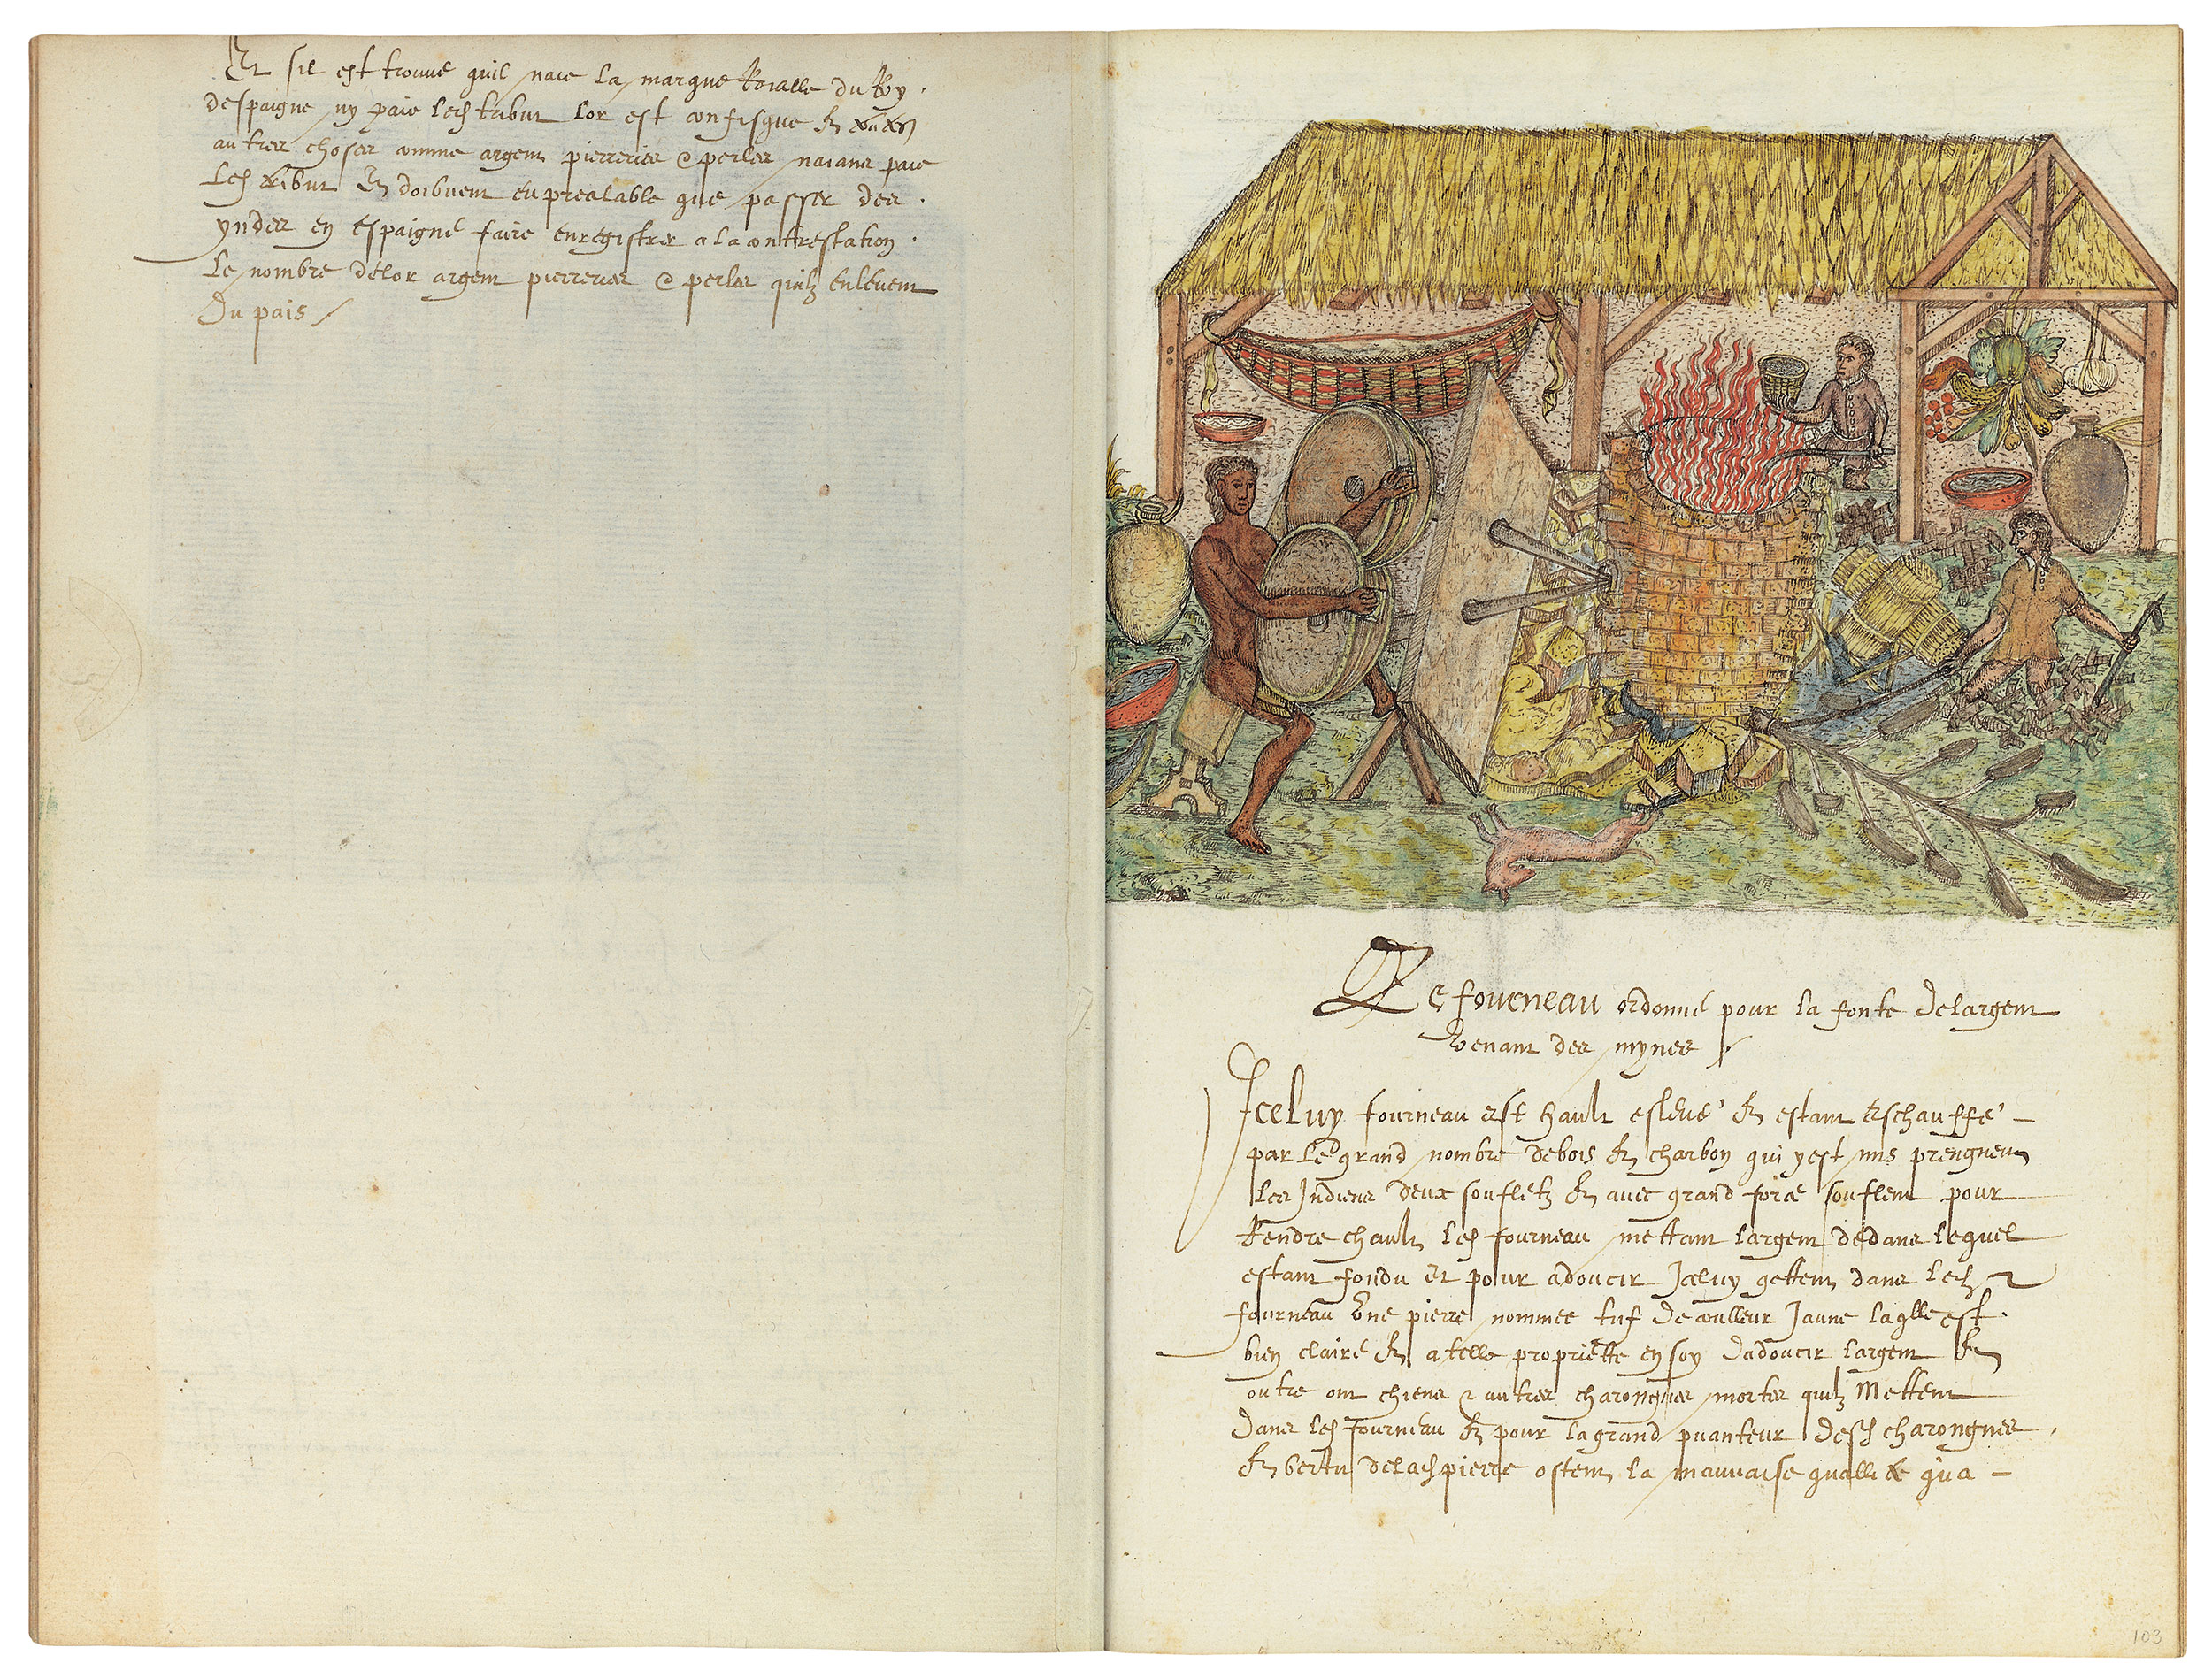 Et sil est trouve quil naie la marque Roialle du Roy
despaigne ny paie led tribut lor est confisque et toutes
autres choses comme argent pierreries & perles naians paie
led tribut Et doibvent eu prealable que passer des
yndes en espaigne faire enregistrer a la contrestation
le nombre delor argent pierreries & perles quilz enlevent
du pais
Le fourneau ordonné pour la fonte delargent
venant des mynes
Iceluy fourneau est hault eslevé et estant eschauffé
par le grand nombre debois et charbon qui yest mis prengnent
les Indiens deux souffletz et avec grand force souflent pour
Rendre chault led fourneau mettant largent dedans lequel
estant fondu et pour adoucir Iceluy gettent dans led
fourneau une pierre nommee tuf de coulleur Jaune laqlle est
bien claire et a telle propriette en soy dadoucir largent Et
outre ont chiens & autres charongnes mortes quilz Mettent
dans led fourneau et pour lagrand puanteur desd charongnes
et vertu delad pierre ostent la mauvaise quallite qua
103